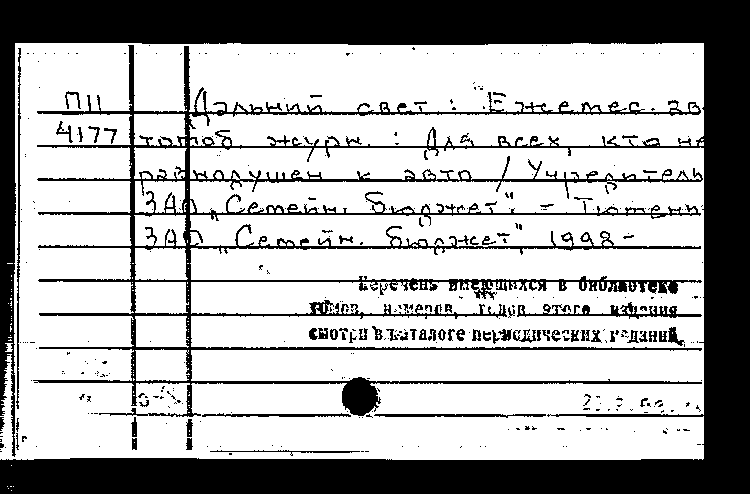 П11 Дальний свет : Ежемес. ав-
4177 томоб. журн. : Для всех, кто не-
равнодушен к авто / Учредитель
ЗАО „Семейн. бюджет". - Тюмень:
ЗАО „Семейн. бюджет", 1998 -
Перечень имеющихся в библиотеке
томов, номеров, годов этого издания
смотри в каталоге периодических изданий